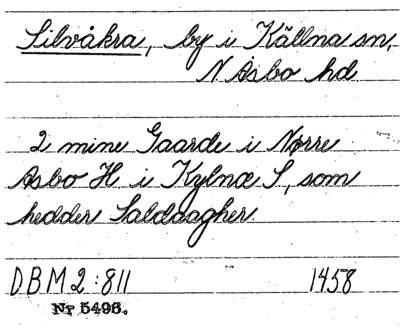 Silvåkra, by i Källna sn,
N Åsbo hd.
2 mine Gaarde i Nørre
Asbo H i Kylnæ S, som
hedder Saldaagher.
DBM 2:811 1458
Nr 5496.